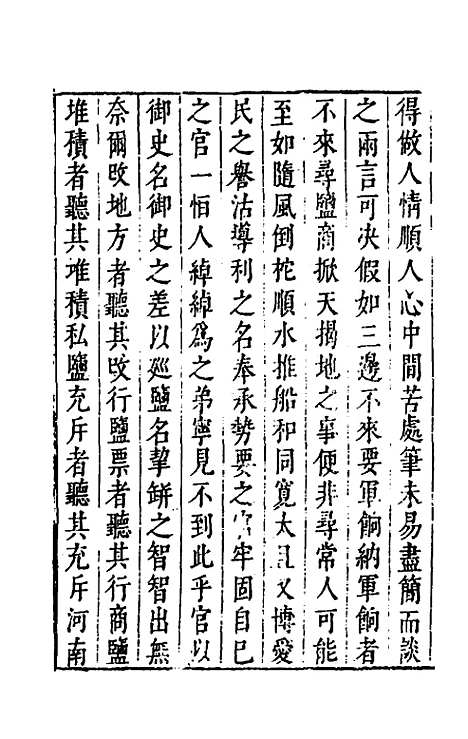 得做人情順人心中間苦處筆未易盡簡而談
之兩言可决假如三邊不來要軍餉納軍餉者
不來尋鹽商掀天揭地之事便非尋常人可能
至如隨風倒柁順水推船和同寬太且又博愛
民之譽沽導利之名奉承勢要之官牢固自己
之官一怕人綽綽爲之弟寧見不到此乎官以
御史名御史之差以廵鹽名挈缾之智智出無
奈爾攺地方者聽其攺行鹽票者聽其行商鹽
堆積者聽其堆積私鹽充斥者聽其充斥河南